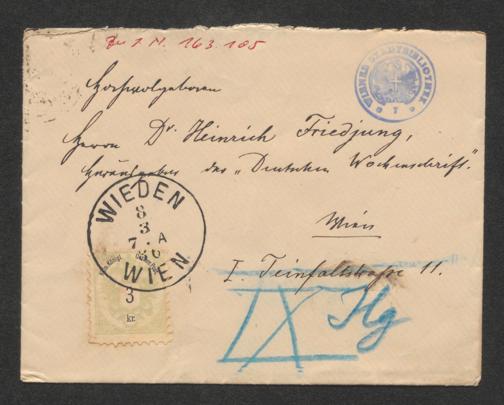 Zu I. N. 163.185
WIENER STADTBIBLIOTHEK
Hochwolgeboren
Herrn Dr. Heinrich Friedjung,
Herausgeber der „Deutschen Wochenschrift“.
Wien
I. Teinfaltstrasse 11.
WIEDEN
8
3
7. A
86
WIEN
3
kr.
IX